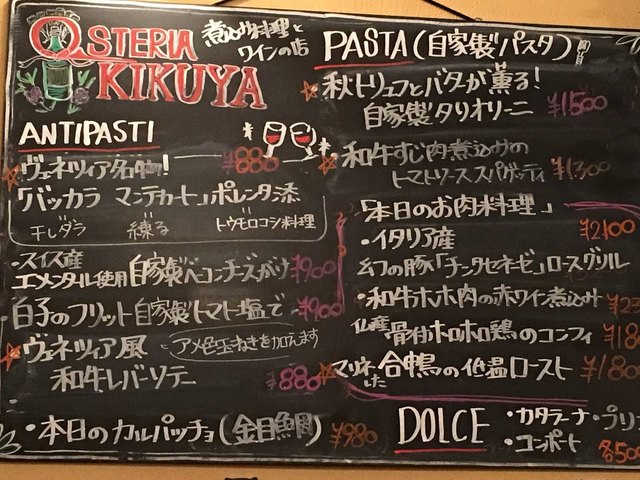 OSTERIA
KIKUYA
煮込み料理と
ワインの店
ANTIPASTI
ヴェネツィア名物! ¥880
「バッカラ マンテカート」ポレンタ添
干しダラ 練る トウモロコシ料理
・スイス産
エメンタール使用 自家製ベーコンチーズがけ ¥900
・白子のフリット自家製トマト塩で ¥900
ヴェネツィア風 アメ色玉ねぎを加えます
和牛レバーソテー ¥880
・本日のカルパッチョ(金目鯛) ¥980
PASTA(自家製パスタ)
秋トリュフとバターが薫る!
自家製タリオリーニ ¥1500
和牛すじ肉煮込みの
トマトソーススパゲッティ ¥1300
「本日のお肉料理」
・イタリア産 ¥2100
幻の豚「チンタセネーゼ」ロースグリル
・和牛ホホ肉の赤ワイン煮込み
仏産 骨付ホロホロ鶏のコンフィ
マリネした 合鴨の低温ロースト ¥1800
DOLCE ・カタラーナ ・プリン
・コンポート 各500